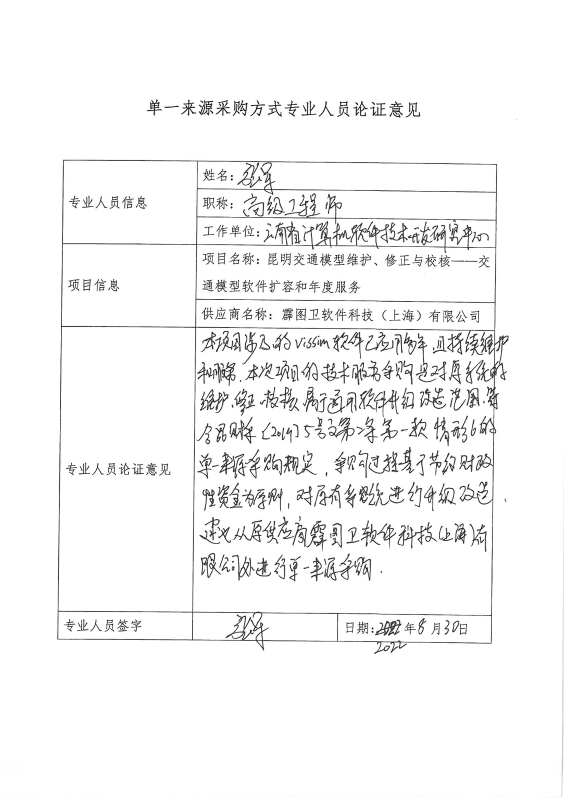 单一来源采购方式专业人员论证意见
专业人员信息
姓名：
职称：高级工程师
工作单位：云南省计算机软件技术开发研究中心
项目信息
项目名称：昆明交通模型维护、修正与校核——交
通模型软件扩容和年度服务
供应商名称：霹图卫软件科技（上海）有限公司
专业人员论证意见
本项目涉及的Vissim软件已应用多年，且持续维护
和服务，本次项目的技术服务采购是对原系统的
维护、修正、校核，属于通用软件升级改造范围，符
合昆财采〔2019〕5号文第二条第一款情形6的
单一来源采购规定，采购过程基于节约财政
性资金为原则，对原有系统进行升级改造，
建议从原供应商霹图卫软件科技（上海）有
限公司处进行单一来源采购.
专业人员签字
日期：年8月30日
2022